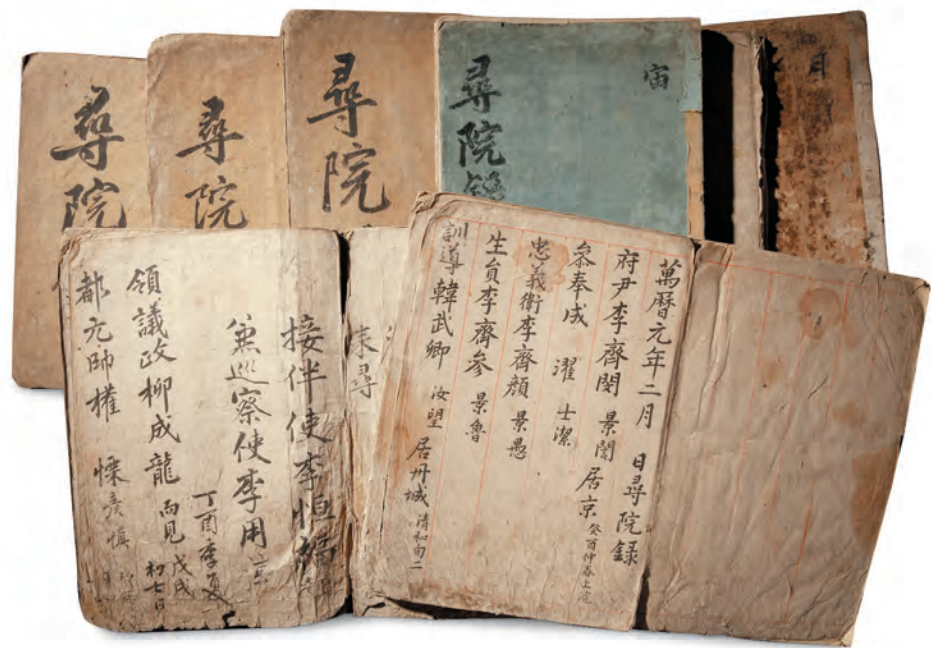 尋院
尋院
尋院
尋院
宙
月
萬曆元年二月 日尋院録
府尹李齊閔 景誾 居京 癸酉仲春上浣
叅奉成 濯 士潔
忠義衛李齊顔 景愚
生員李齊參 景魯
訓導韓武卿 汝望 居丹城 清和旬二
来尋
接伴使李恒
兼巡察使李用
丁酉季夏
領議政柳成龍 而見 戊戌 初七日
都元帥權 慄 彦愼